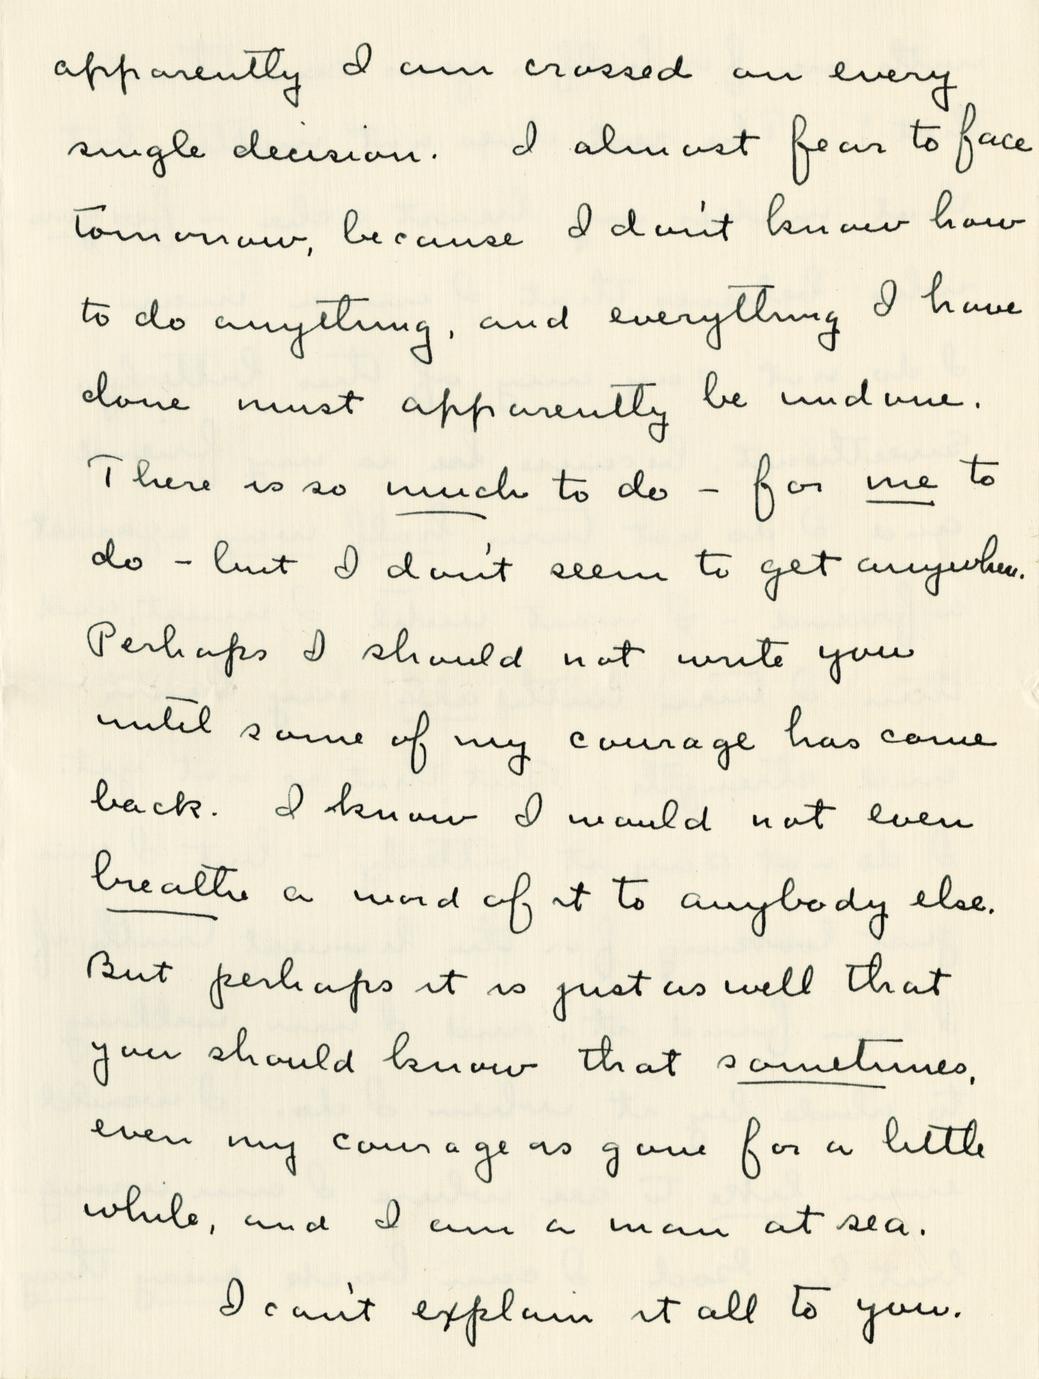 apparently I am crossed on every
single decision. I almost fear to face
tomorrow, because I don't know how
to do anything, and everything I have
done must apparently be undone.
There is so much to do – for me to
do – but I don't seem to get anywhere.
Perhaps I should not write you
until some of my courage has come
back. I know I would not even
breathe a word of it to anybody else.
But perhaps it is just as well that
you should know that sometimes,
even my courage is gone for a little
while, and I am a man at sea.
I can't explain it all to you.